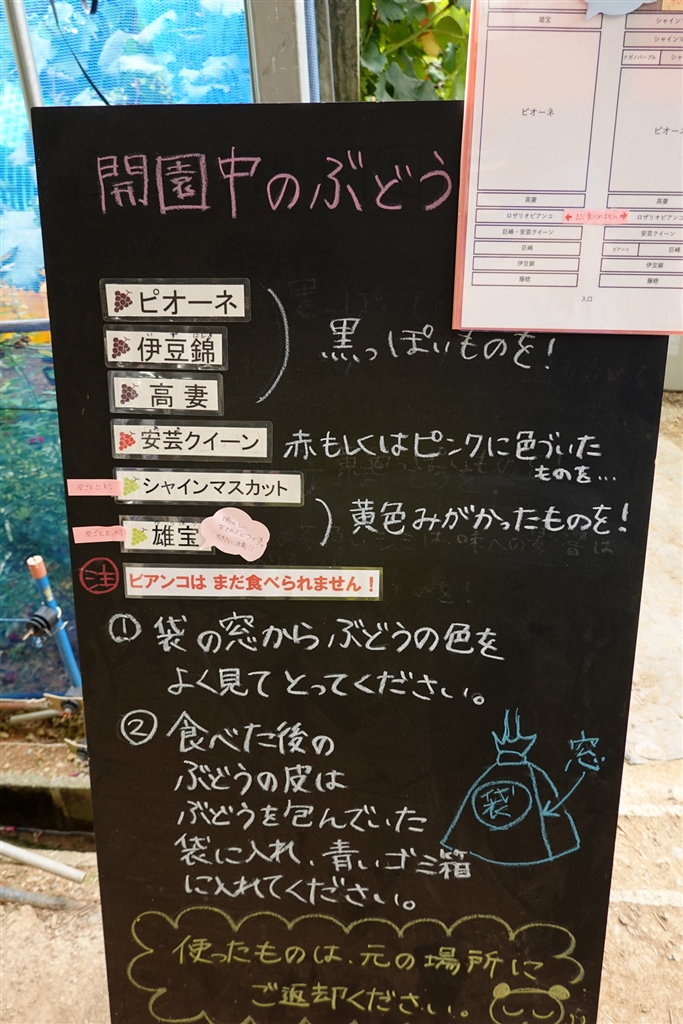 開園中のぶどう
ピオーネ
いずにしき
伊豆錦
高妻
黒っぽいものを!
安芸クイーン
赤もしくはピンクに色づいた
ものを…
シャインマスカット
雄宝
黄色みがかったものを!
注
ビアンコは まだ食べられません!
① 袋の窓からぶどうの色を
よく見てとってください。
② 食べた後の
ぶどうの皮は
ぶどうを包んでいた
袋に入れ、青いゴミ箱
に入れてください。
袋
窓
使ったものは、元の場所に
ご返却ください。
雄宝
ピオーネ
高妻
ロザリオビアンコ
まだ食べれません
巨峰・安芸クイーン
巨峰
伊豆錦
藤稔
入口
シャイン
シャインマ
ナガノパープル
シャ
ピオーネ
高妻
ロザリオビアンコ
安芸クイーン
ビアンコ
巨峰
伊豆錦
藤稔